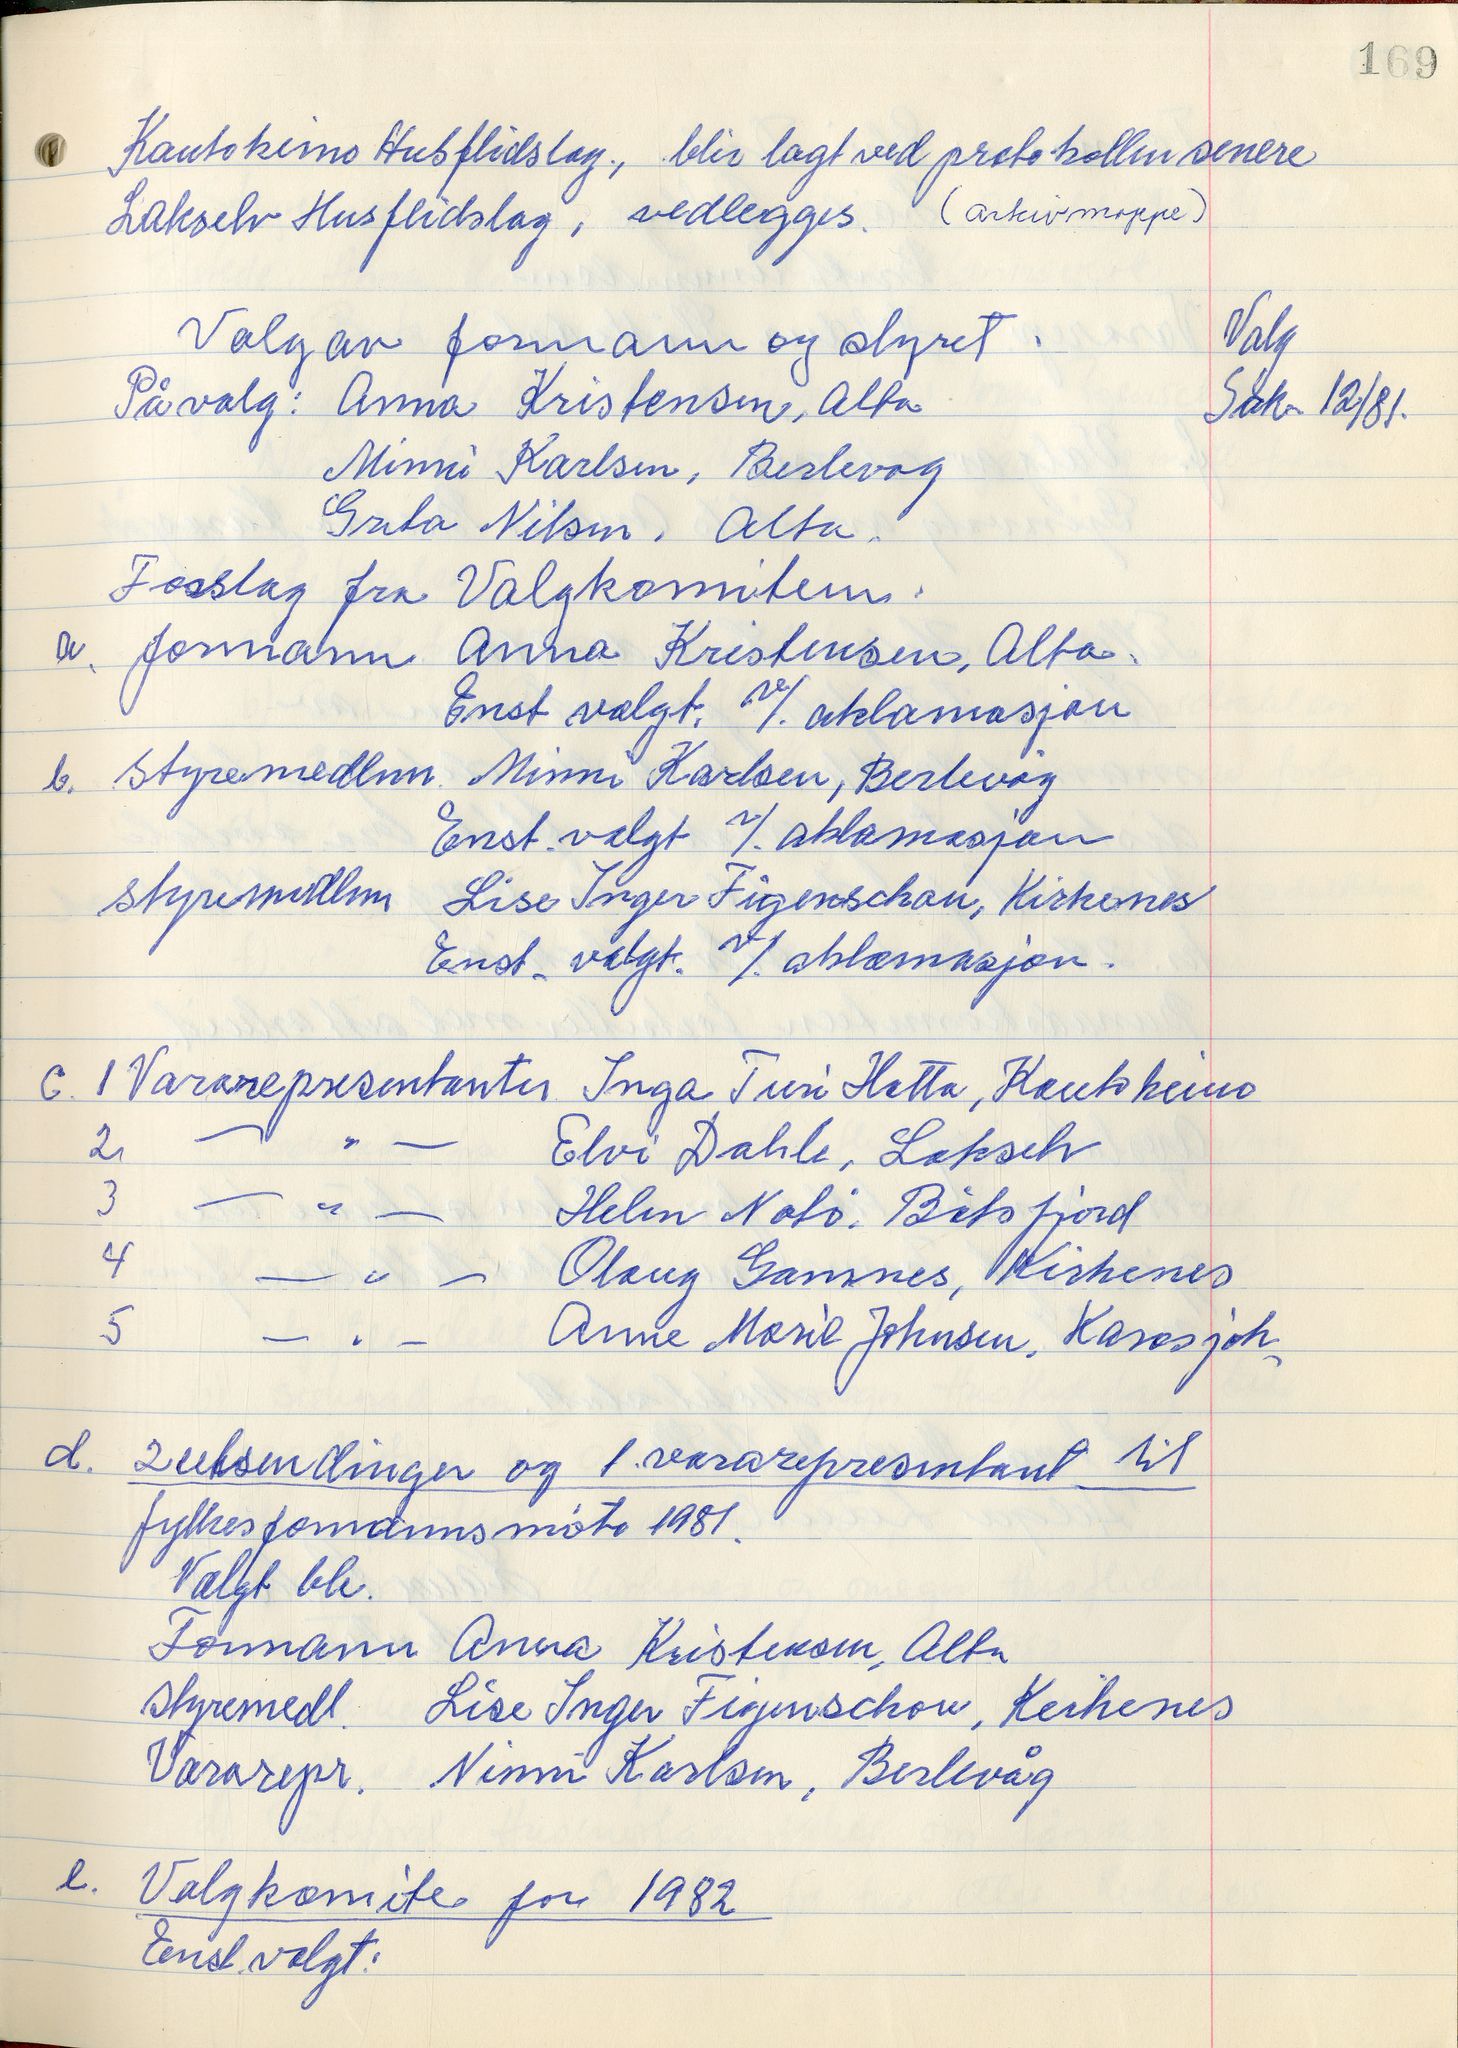 169
Kautokeino Husflidslag, blir lagt ved protokollen senere
Lakselv Husflidslag, vedlegges. (arkivmappe)
Valg av formann og styret.
Valg
På valg: Anna Kristensen, Alta
Sak 12/81.
Minni Karlsen, Berlevåg
Greta Nilsen, Alta.
Forslag fra Valgkomiteen.
a. formann Anna Kristensen, Alta.
Enst valgt. v/. aklamasjon
b. Styremedlem Minni Karlsen, Berlevåg
Enst. valgt v/. aklamasjon
styremedlem Lise Inger Figenschau, Kirkenes
Enst. valgt. v/. aklamasjon.
c. 1 Vararepresentanter Inga Turi Hætta, Kautokeino
2. — " — Elvi Dahle, Lakselv
3 — " — Helen Notø. Båtsfjord
4 — " — Olaug Gamnes, Kirkenes
5 — " — Anne Marie Johnsen, Karasjok.
d. 2 utsendinger og 1. vararepresentant til
fylkesformannsmøte 1981.
Valgt ble.
Formann Anna Kristensen, Alta
styremedl. Lise Inger Figenschow, Kirkenes
Vararepr. Ninni Karlsen, Berlevåg
e. Valgkomite for 1982
Enst. valgt: